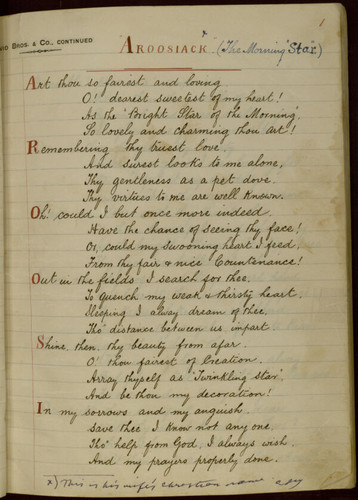 1
Bros. & Co., CONTINUED
AROOSIACK x (The Morning "Star")
Art thou so fairest and loving
O! dearest sweetest of my heart!
As the "Bright Star of the Morning",
So lovely and charming thou art!
Remembering thy truest love,
And surest looks to me alone,
Thy gentleness as a pet dove.
Thy virtues to me are well known.
Oh! could I but once more indeed
Have the chance of seeing thy face!
Or, could my swooning heart I feed,
From thy fair & nice Countenance!
Out in the fields I search for thee,
To quench my weak & thirsty heart,
Sleeping I alway dream of thee,
Tho' distance between us impart.
Shine, then, thy beauty from afar
O! thou fairest of Creation.
Array thyself as "Twinkling star",
And be thou my decoration!
In my sorrows and my anguish,
Save thee I know not any one,
Tho' help from God, I always wish,
And my prayers properly done.
x) This is his wife's christian name